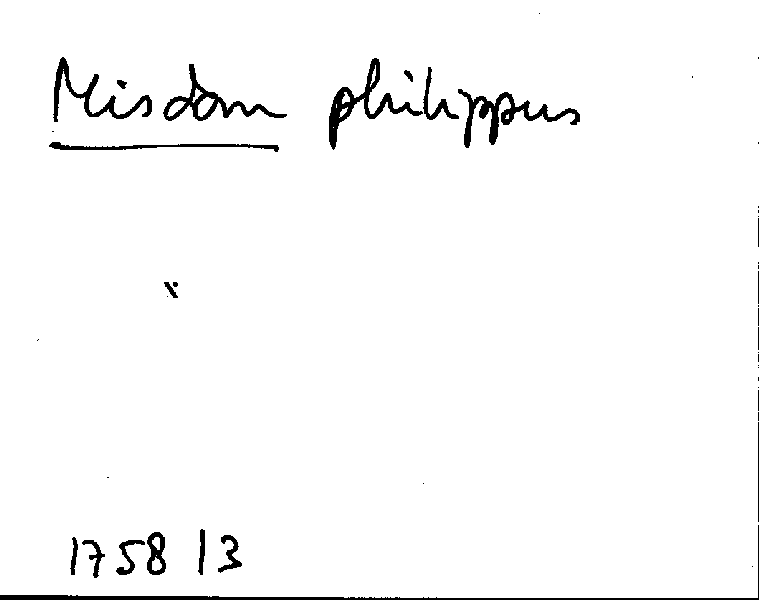 Misdom philippus
x
1758 13